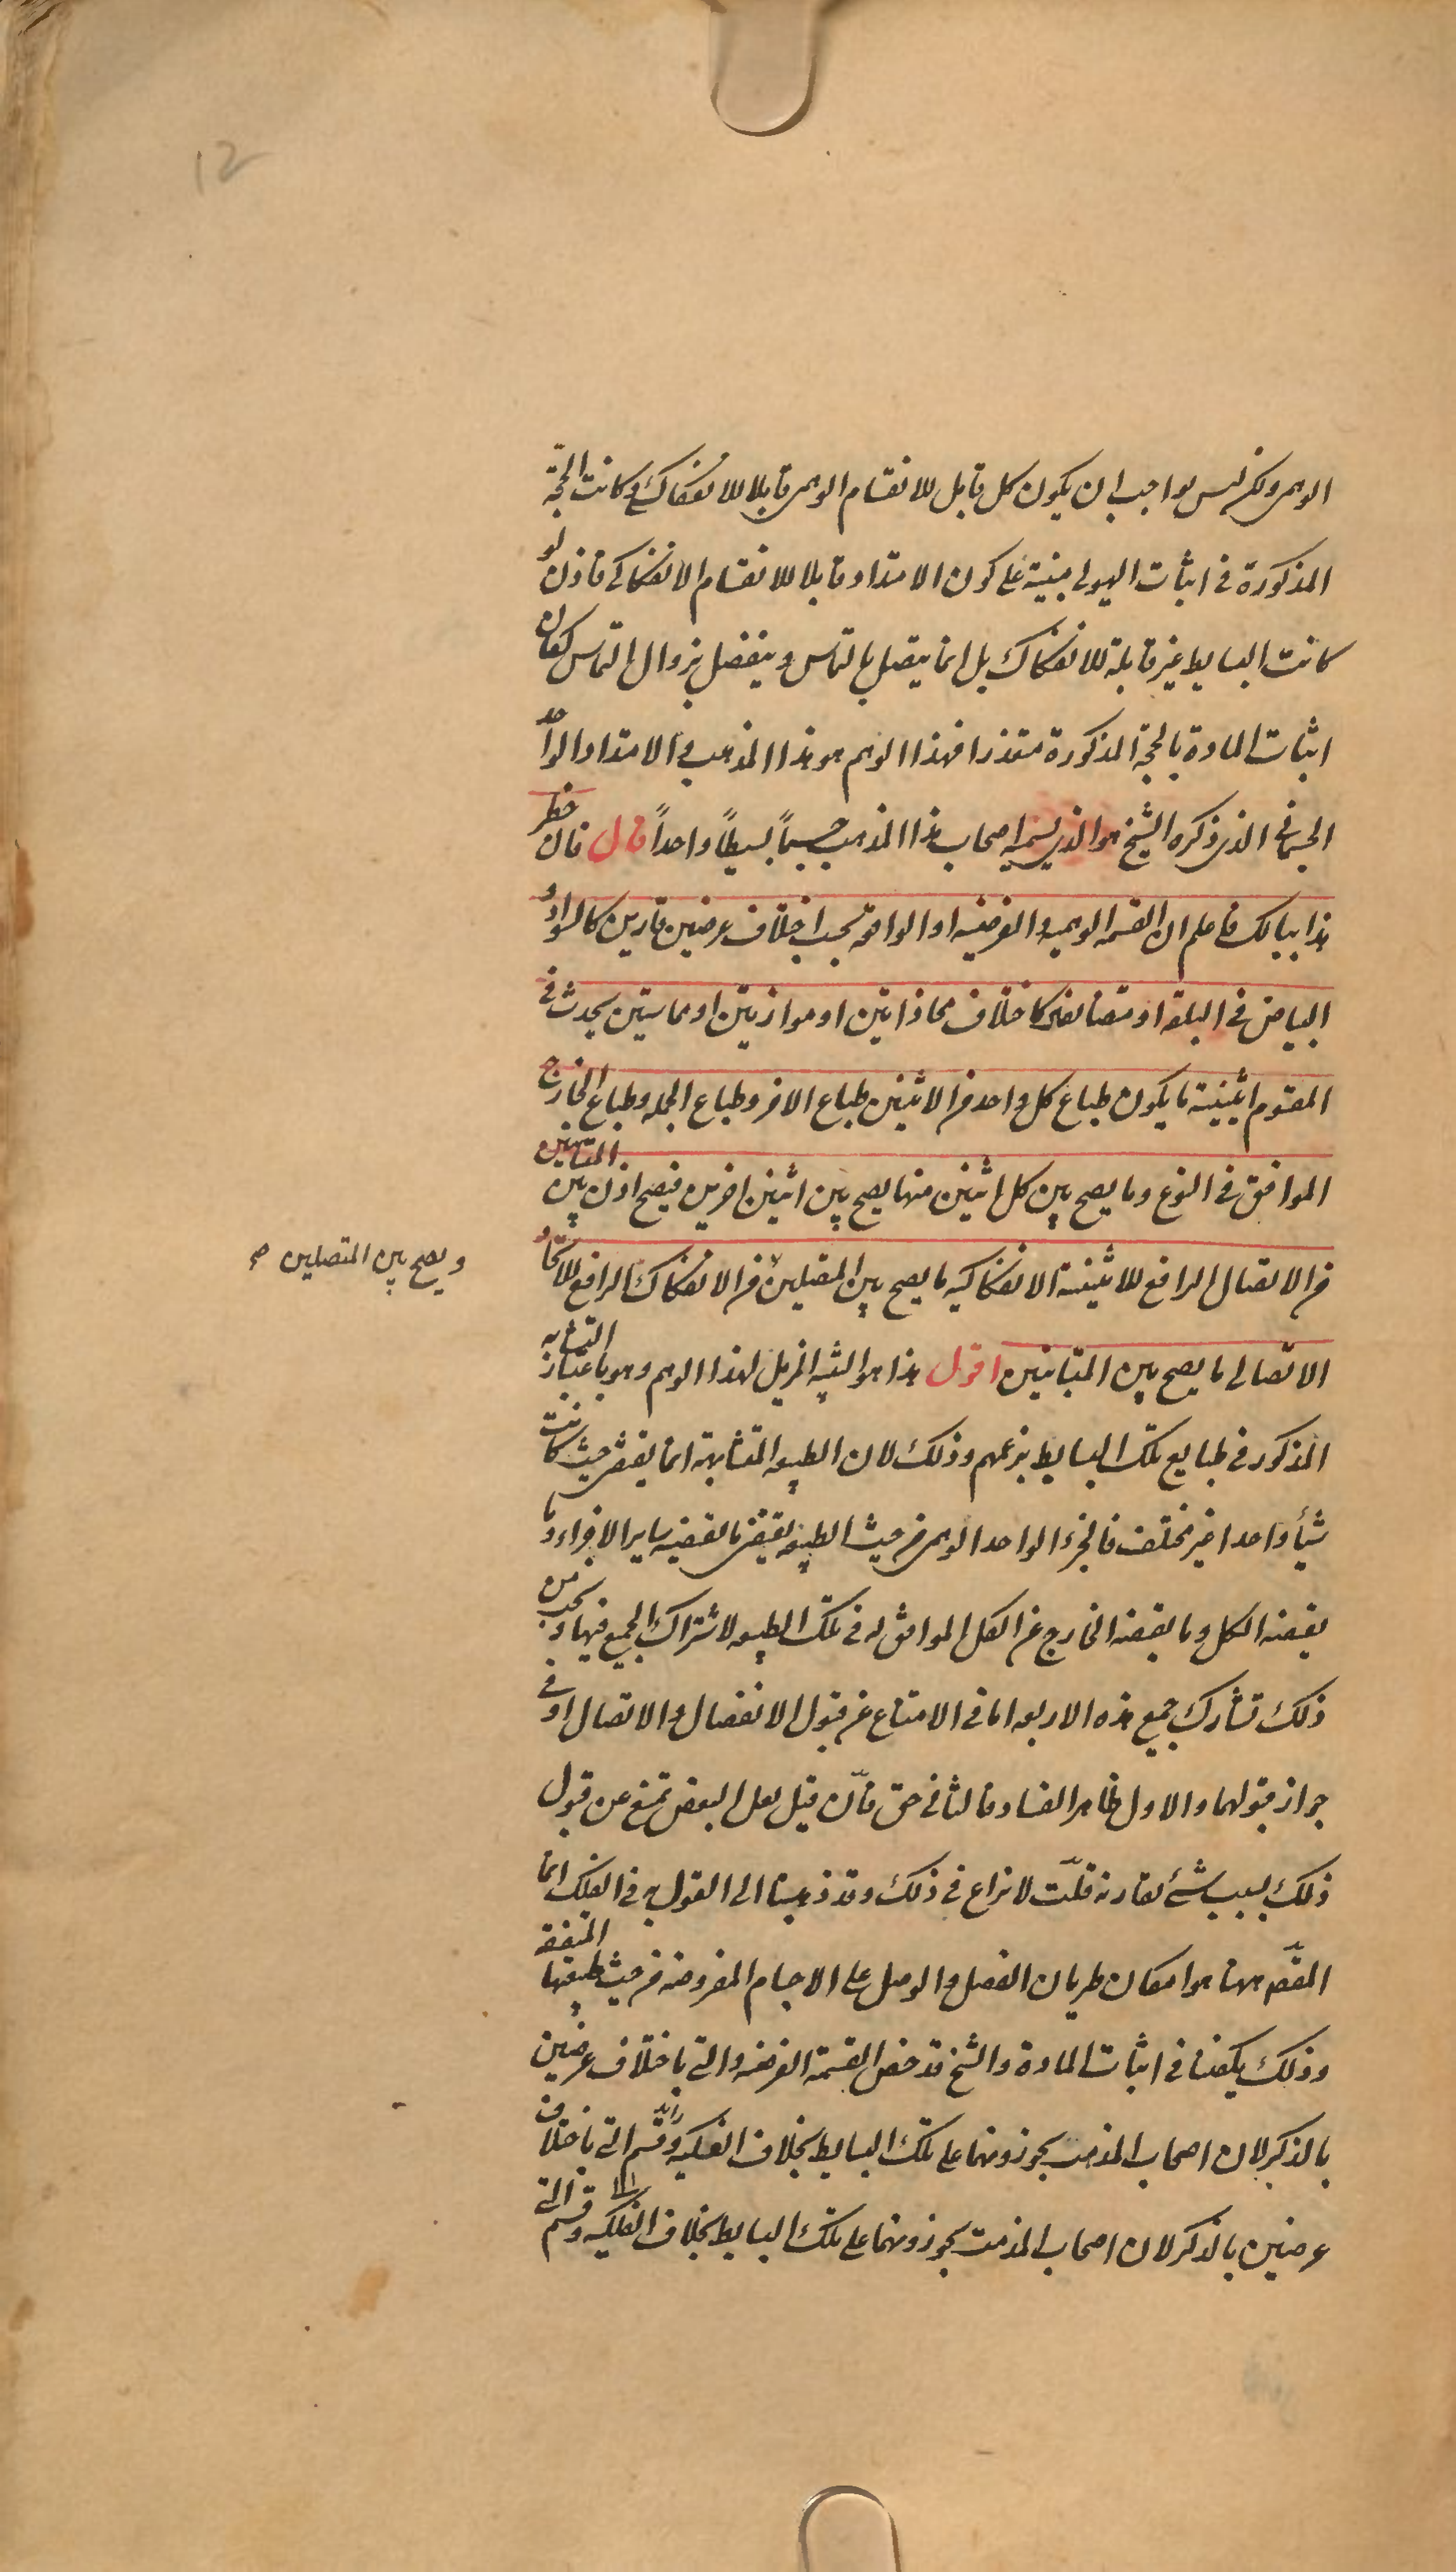 12
الوهمى ولكن ليس بواجب ان يكون كل قابل للانقسام الوهمى قابلا للانفكاكى وكانت الحجة
المذكورة فى اثبات الهيولى مبنية على كون الامتداد قابلا للانقسام الانفكاكى فاذن لو
كانت البسايط غير قابلة للانفكاك بل انما يتصل بالتماس وينفصل بزوال التماس لكان
اثبات المادة بالحجة المذكورة متعذرا فهذا الوهم هو هذا المذهب والامتداد الواحد
الجسمانى الذى ذكره الشيخ هو الذى يسميه اصحاب هذا المذهب جسماً بسيطاً واحداً قال فان خطر
هذا ببالك فاعلم ان القسمه الوهميه والفرضيه او الواقعه بحسب اختلاف عرضين قارين كالسواد و
البياض فى البلقه او مضافين كاختلاف محاذاتين او موازيتين او مماستين يحدث فى
المقسوم اثنينية ما يكون طباع كل واحد من الاثنين طباع الاخر وطباع الجمله وطباع الخارج
الموافق فى النوع وما يصح بين كل اثنين منها يصح بين اثنين اخرين فيصح اذن بين المتباينين
من الاتصال الرافع للاثنينية الانفكاكيه ما يصح بين المتصلين من الانفكاك الرافع للاتحاد
ويصح بين المتصلين صح
الاتصالى ما يصح بين المتباينين اقول هذا هو التنبيه المزيل لهذا الوهم وهو باعتبار التشابه
المذكور فى طبايع تلك البسايط بزعمهم وذلك لان الطبيعه المتشابهة انما يقتضى حيث كانت
شيأ واحدا غير مختلف فالجزء الواحد الوهمى من حيث الطبيعه يقتضى ما يقتضيه ساير الاجزاء وما
يقتضيه الكل وما يقتضيه الخارج عن الكل الموافق له فى تلك الطبيعه لاشتراك الجميع فيها ويجب من
ذلك تشارك جميع هذه الاربعه اما فى الامتناع عن قبول الانفصال والاتصال او فى
جواز قبولهما والاول ظاهر الفساد فالثانى حق فان قيل لعل البعض تمنع عن قبول
ذلك بسبب شئ يقارنه قلت لا نزاع فى ذلك وقد ذهبنا الى القول به فى الفلك انما
المقصد ههنا هو امكان طريان الفصل والوصل على الاجسام المفروضه من حيث طبيعتها المتفقه
وذلك يكفينا فى اثبات المادة والشيخ قد خص القسمة الفرضيه والتى باختلاف عرضين
بالذكر لان اصحاب المذهب يجوزونهما على تلك البسايط بخلاف الفكيه وقسم التى باختلاف
عرضين بالذكر لان اصحاب المذهب يجوزونهما على تلك البسايط بخلاف الفكيه وقسم التى